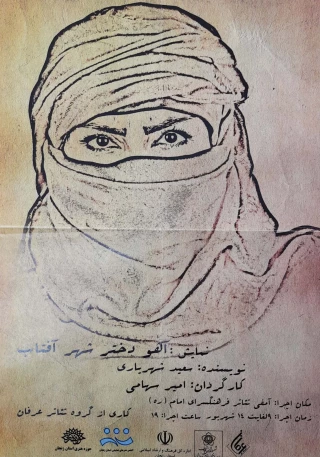 نمایش : آهو دختر شهر آفتاب
نویسنده: سعید شهریاری
کارگردان: امیر سهامی
مکان اجرا: آمفی تئاتر فرهنگسرای امام (ره)
زمان اجرا: ۹ الغایت ۱۴ شهریور ساعت اجرا: ۱۹
کاری از گروه تئاتر عرفان